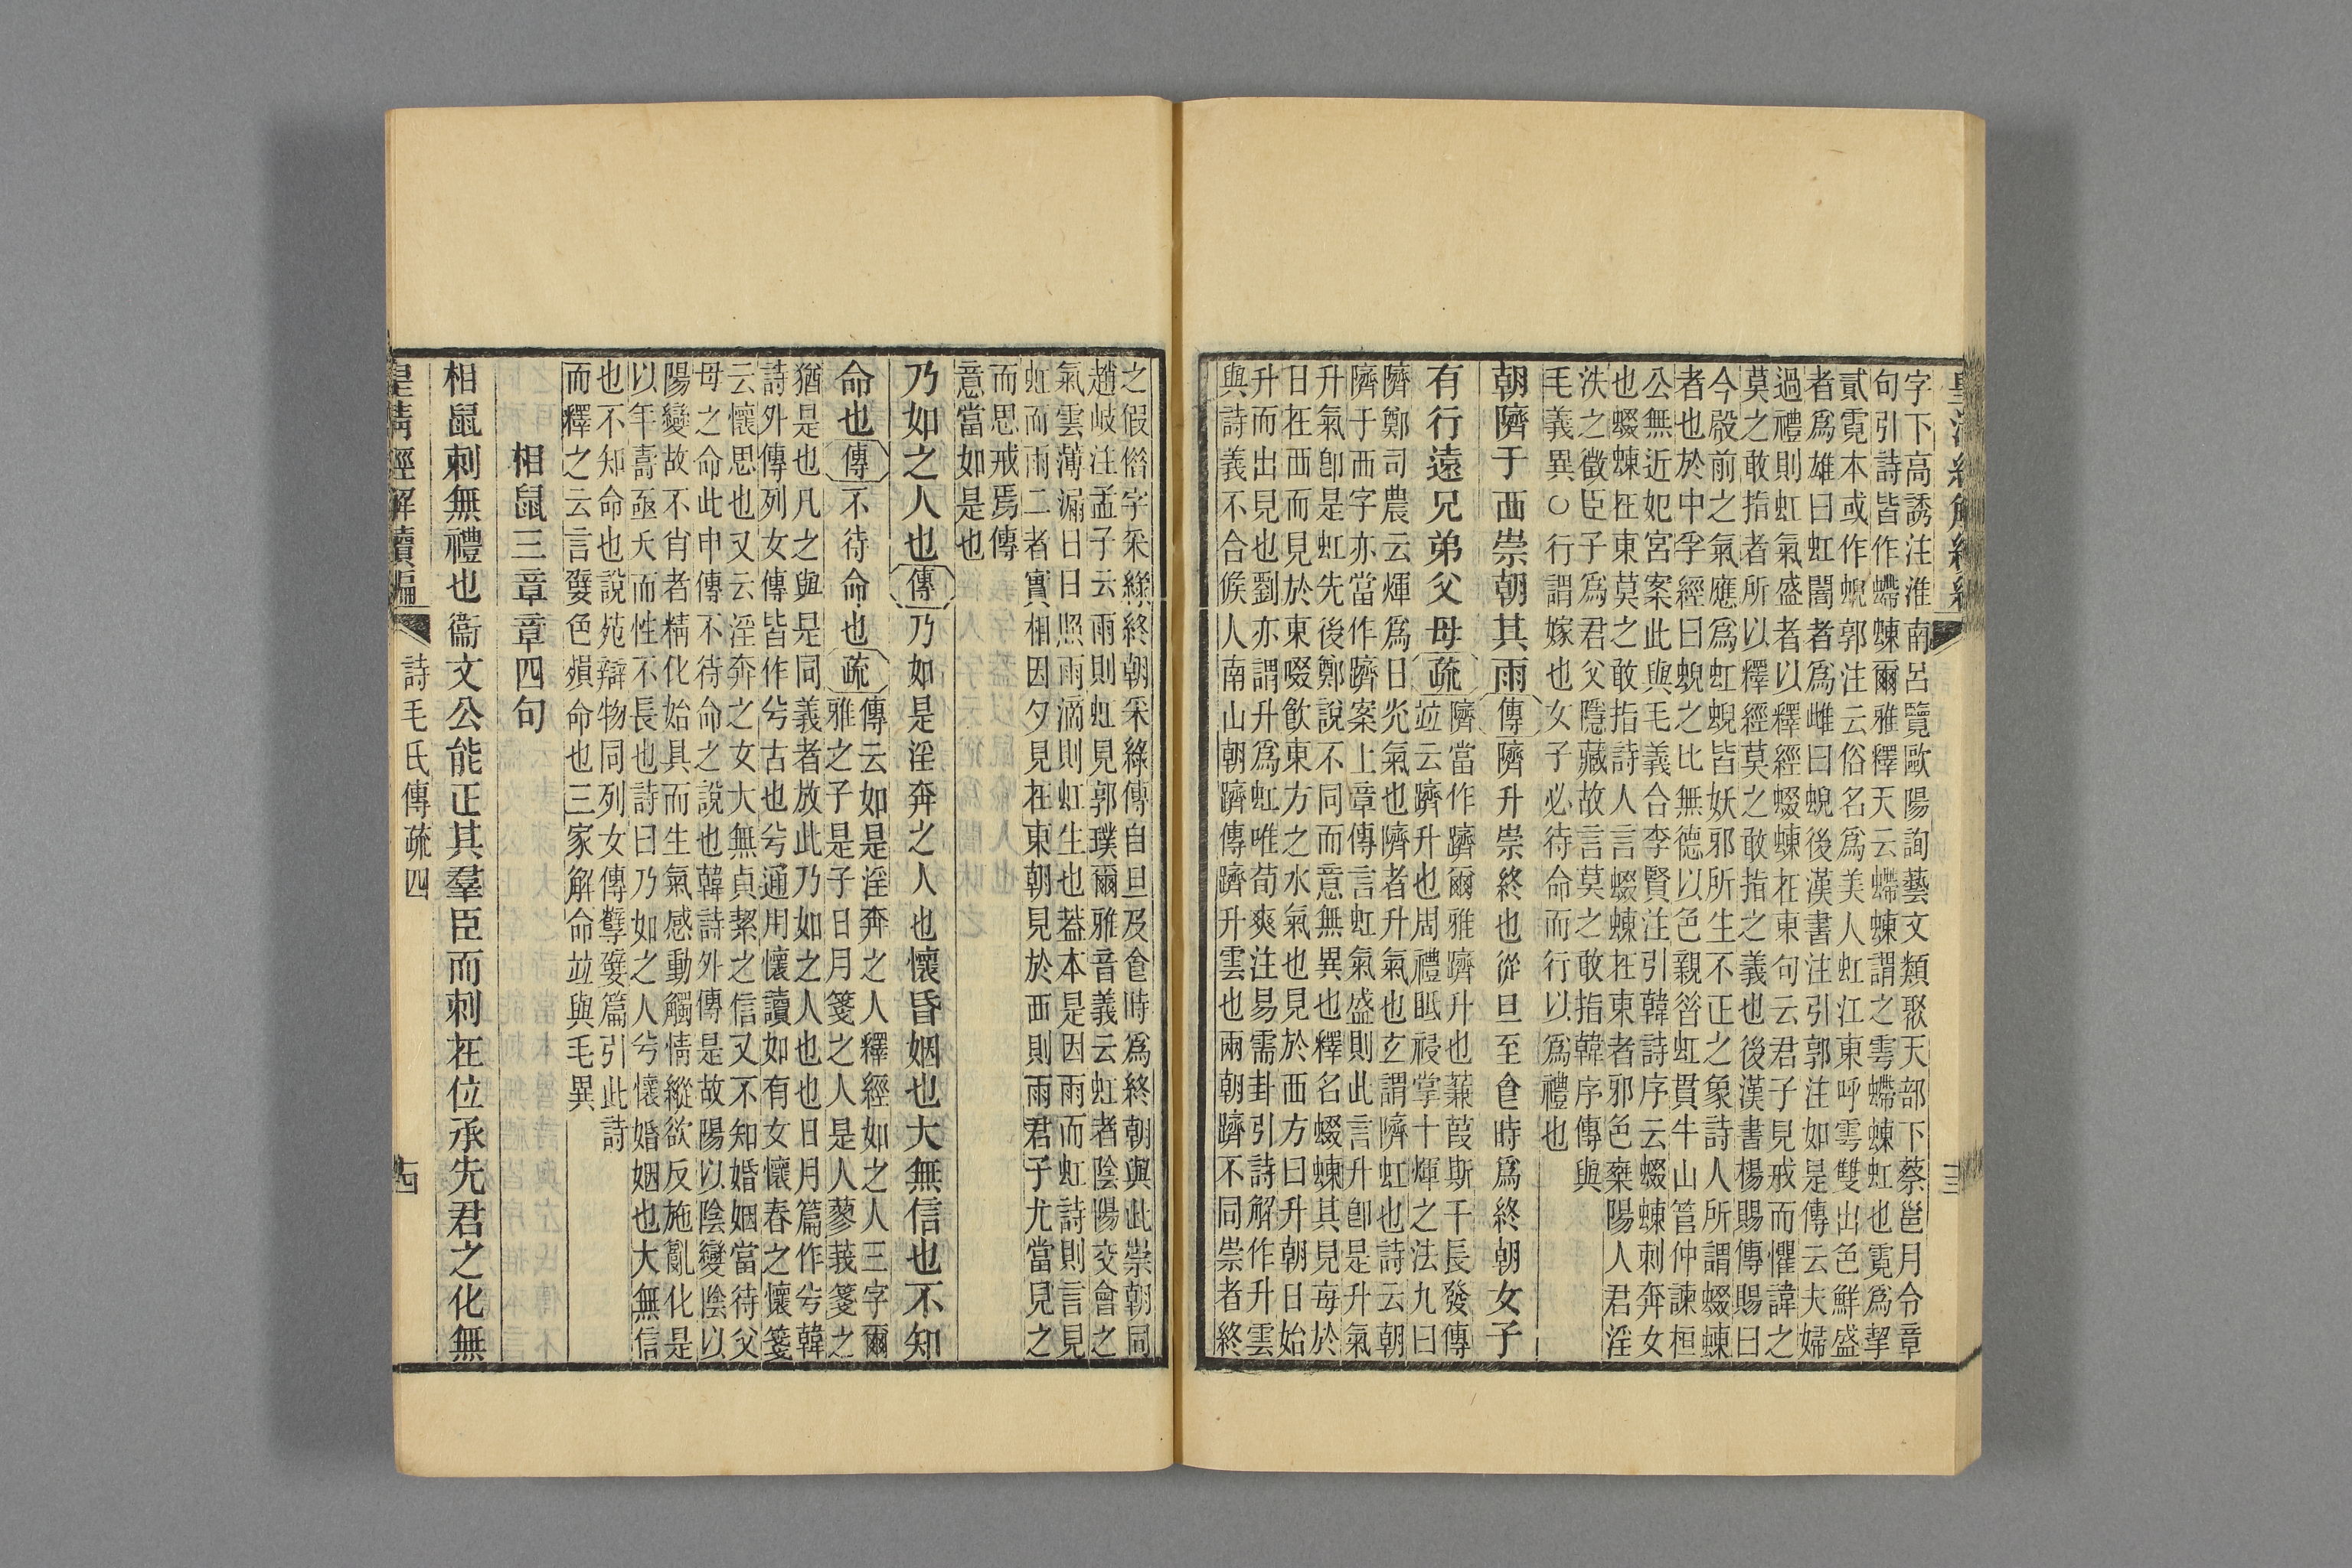 字下高誘注淮南呂覽歐陽詢藝文類聚天部下蔡邕月令章
句引詩皆作螮蝀爾雅釋天云螮蝀謂之雩螮蝀虹也霓爲挈
貳霓本或作蜺郭注云俗名爲美人虹江東呼雩雙出色鮮盛
者爲雄曰虹闇者爲雌曰蜺後漢書注引郭注如是傳云夫婦
過禮則虹氣盛者以釋經蝃蝀在東句云君子見戒而懼諱之
莫之敢指者所以釋經莫之敢指之義也後漢書楊賜傳賜曰
今殿前之氣應爲虹蜺皆妖邪所生不正之象詩人所謂蝃蝀
者也於中孚經曰蜺之比無德以色親咎虹貫牛山管仲諫桓
公無近妃宮案此與毛義合李賢注引韓詩序云蝃蝀刺奔女
也蝃蝀在東莫之敢指詩人言蝃蝀在東者邪色椉陽人君淫
泆之徵臣子爲君父隱藏故言莫之敢指韓序傳與
毛義異○行謂嫁也女子必待命而行以爲禮也
朝隮于西崇朝其雨傳隮升崇終也從旦至食時爲終朝女子
有行遠兄弟父母疏隮當作躋爾雅躋升也蒹葭斯干長發傳
竝云躋升也周禮眡祲掌十煇之法九曰
隮鄭司農云煇爲日光氣也隮者升氣也玄謂隮虹也詩云朝
隮于西字亦當作躋案上章傳言虹氣盛則此言升卽是升氣
升氣卽是虹先後鄭說不同而意無異也釋名蝃蝀其見每於
日在西而見於東啜飮東方之水氣也見於西方曰升朝日始
升而出見也劉亦謂升爲虹唯荀爽注易需卦引詩解作升雲
與詩義不合候人南山朝躋傳躋升雲也兩朝躋不同崇者終
之假俗字采綠終朝采綠傳自旦及食時爲終朝與此崇朝同
趙岐注孟子云雨則虹見郭璞爾雅音義云虹者陰陽交會之
氣雲薄漏日日照雨滴則虹生也葢本是因雨而虹詩則言見
虹而雨二者實相因夕見在東朝見於西則雨君子尤當見之
而思戒焉傳
意當如是也
乃如之人也傳乃如是淫奔之人也懷昏姻也大無信也不知
命也傳不待命也疏傳云如是淫奔之人釋經如之人三字爾
雅之子是子日月箋之人是人蓼莪箋之
猶是也凡之與是同義者放此乃如之人也日月篇作兮韓
詩外傳列女傳皆作兮古也兮通用懷讀如有女懷春之懷箋
云懷思也又云淫奔之女大無貞絜之信又不知婚姻當待父
母之命此申傳不待命之說也韓詩外傳是故陽以陰變陰以
陽變故不肖者精化始具而生氣感動觸情縱欲反施亂化是
以年壽亟夭而性不長也詩曰乃如之人兮懷婚姻也大無信
也不知命也說苑辯物同列女傳孽嬖篇引此詩
而釋之云言嬖色殞命也三家解命竝與毛異
相鼠三章章四句
相鼠刺無禮也衞文公能正其羣臣而刺在位承先君之化無
皇淸經解續編 詩毛氏傳疏四